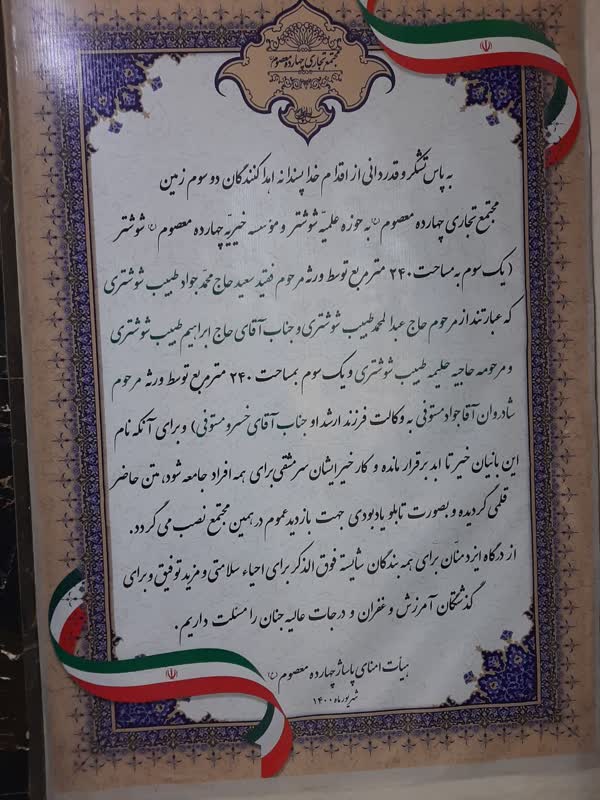 مجتمع تجاری چهارده معصوم
به پاس تشکر و قدردانی از اقدام خدا پسندانه اهدا کنندگان دو سوم زمین
مجتمع تجاری چهارده معصوم (ع) به حوزه علمیّه شوشتر و مؤسسه خیریّه چهارده معصوم (ع) شوشتر
( یک سوم به مساحت ۲۴۰ مترمربع توسط ورثه مرحوم فقید سعید حاج محمّد جواد طبیب شوشتری
که عبارتند از مرحوم حاج عبدالمحمد طبیب شوشتری و جناب آقای حاج ابراهیم طبیب شوشتری
و مرحومه حاجیه حلیمه طبیب شوشتری و یک سوم بمساحت ۲۴۰ مترمربع توسط ورثه مرحوم
شادروان آقا جواد مستوفی به وکالت فرزند ارشد او جناب آقای خسرو مستوفی) و برای آنکه نام
این بانیان خیر تا ابد برقرار مانده و کار خیر ایشان سرمشقی برای همه افراد جامعه شود، متن حاضر
قلمی گردیده و بصورت تابلو یادبودی جهت بازدید عموم در همین مجتمع نصب می گردد.
از درگاه ایزد منّان برای همه بندگان شایسته فوق الذکر برای احیاء سلامتی و مزید توفیق و برای
گذشتگان آمرزش و غفران و درجات عالیه جنان را مسئلت داریم.
هیأت امنای پاساژ چهارده معصوم (ع)
شهریور ماه ۱۴۰۰